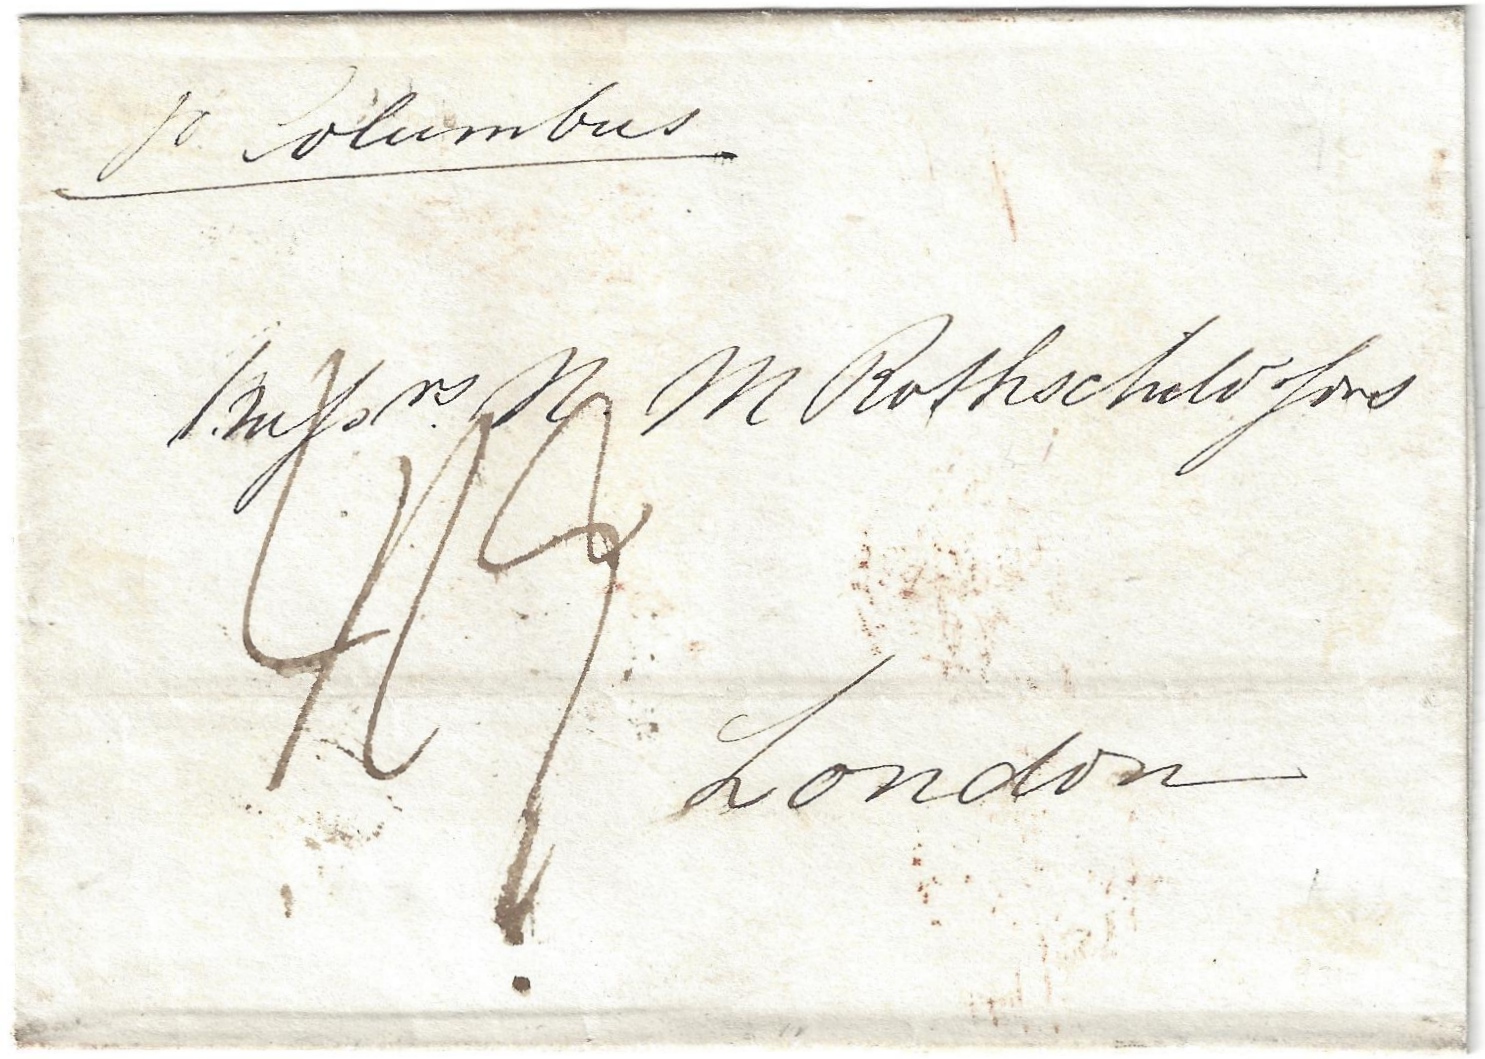 p Columbus
Messrs. N. M Rothschild & Sons
London